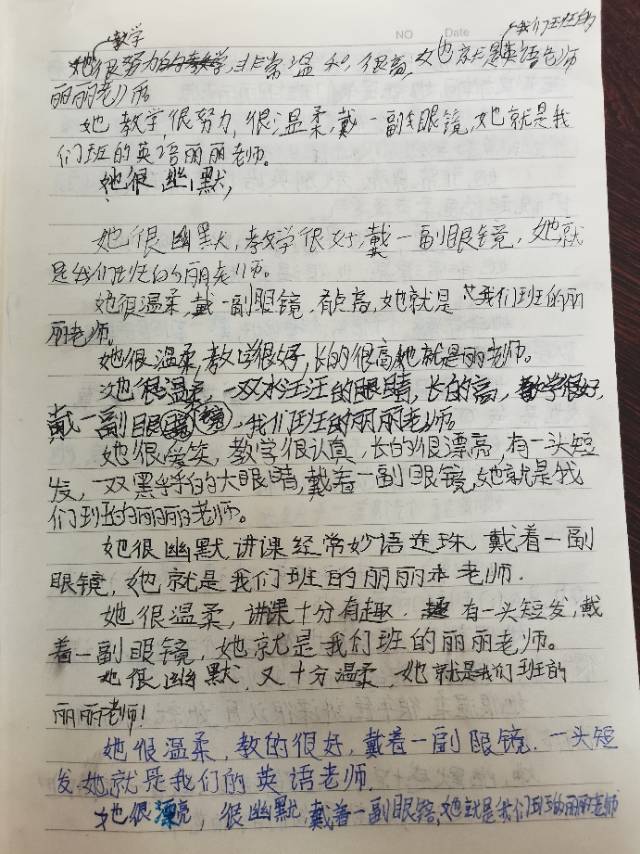 NO Date
教学 我们班的
她很努力,非常温和,很高,她就是英语老师
丽丽老师。
她教学很努力,很温柔,戴一副眼镜,她就是我
们班的英语丽丽老师。
她很幽默,
她很幽默,教学很好,戴一副眼镜,她就
是我们班的丽老师。
她很温柔,戴一副眼镜,有点高,她就是我们班的丽
丽老师。
她很温柔,教学很好,长的很高她就是丽老师。
她很温柔,一双水汪汪的眼睛,长的高,教学很好,
戴一副眼镜,我们班的丽丽老师。
她很爱笑,教学很认真,长的很漂亮,有一头短
发,一双黑乎乎的大眼睛,戴着一副眼镜,她就是我
们班的丽丽老师。
她很幽默讲课经常妙语连珠,戴着一副
眼镜,她就是我们班的丽丽老师.
她很温柔,讲课十分有趣.有一头短发,戴
着一副眼镜,她就是我们班的丽丽老师。
她很幽默,又十分温柔,她就是我们班的
丽丽老师!
她很温柔,教的很好,戴着一副眼镜.一头短
发.她就是我们的英语老师.
她很漂亮,很幽默,戴着一副眼镜,她就是我们班的丽丽老师